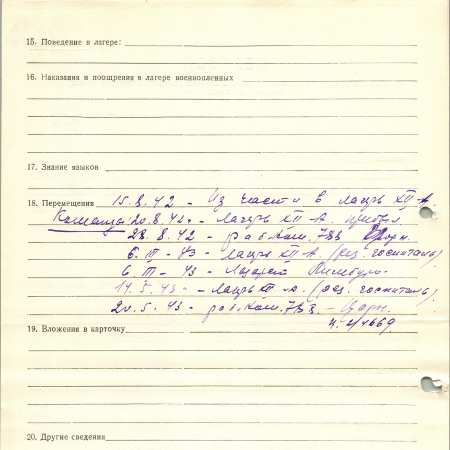 15. Поведение в лагере:
16. Наказания и поощрения в лагере военнопленных
17. Знание языков
18. Перемещения 15.8.42 - Из части в лагерь XII А.
Команды: 20.8.42 - Лагерь XII А. прибыл
28.8.42 - раб. ком. 783
6. III - 43 - Лагерь XII А. (рез. госпиталь)
6. III - 43 - Лазарет Лимбург
14.5.43 - Лагерь XII А. (рез. госпиталь)
20.5.43 - раб. ком. 783 -
19. Вложения в карточку
20. Другие сведения